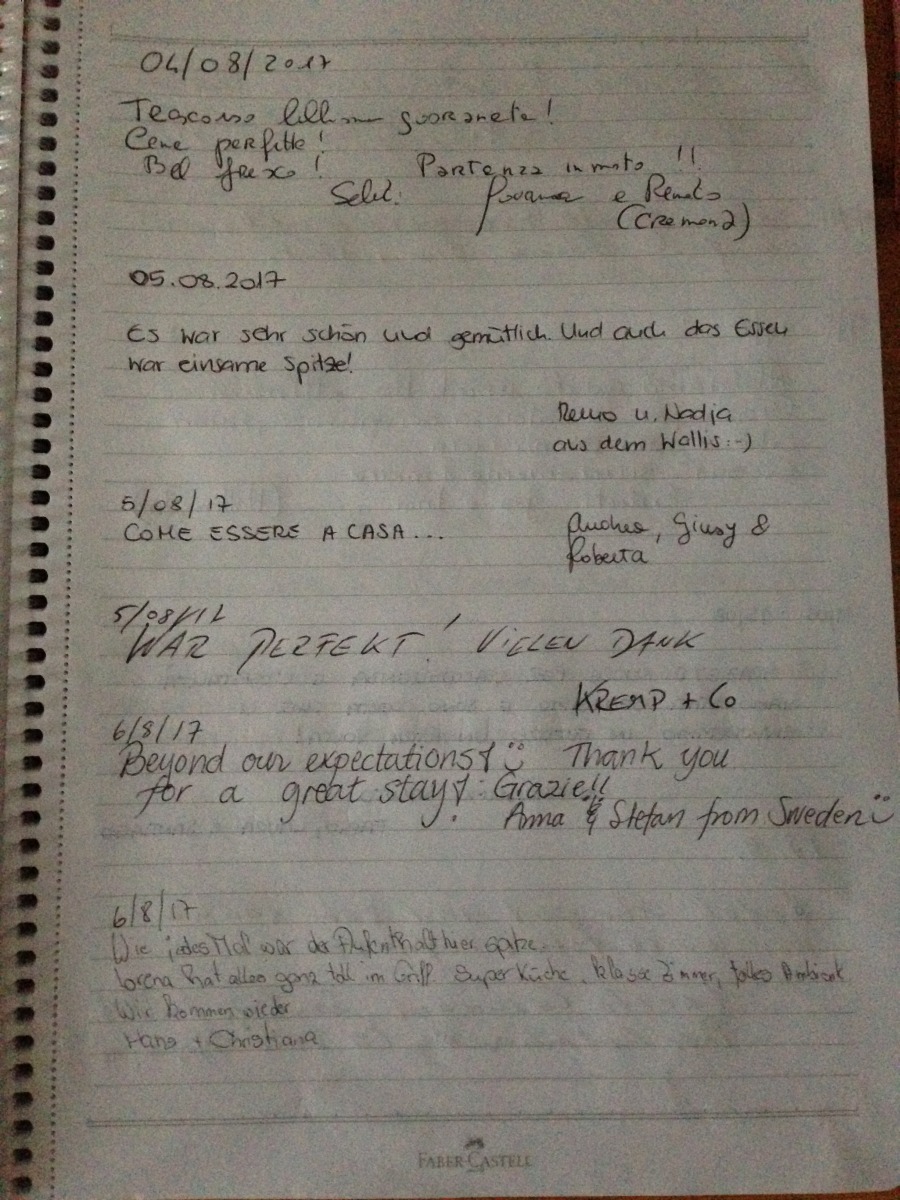 04/08/2017
Trascorso bellissima !
Cena perfetta!
Bel fresco! Partenza in moto !!
Salut. e Renato
(Cremona)
05.08.2017
Es war sehr schön und gemütlich. Und auch das Essen
war einsame Spitze!
Remo u. Nadja
aus dem Wallis :-)
5/08/17
COME ESSERE A CASA... Andrea, Giusy &
Roberta
5/08/17
WAR PERFEKT! VIELEN DANK
KREMP + Co
6/8/17
Beyond our expectations! Thank you
for a great stay! Grazie!!
Anna & Stefan from Sweden
6/8/17
Wie jedes Mal war der Aufenthalt hier spitze.
Lorena hat alles ganz toll im Griff. Super Küche, klasse Zimmer, tolles Ambiente
Wir kommen wieder
Hans + Christiana
FABER-CASTELL